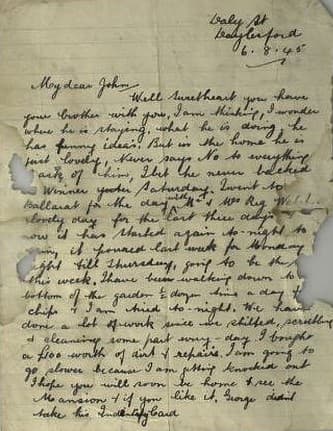 Daly St
Daylesford
6.8.45
My dear John
Well Sweetheart you have
your brother with you, I am thinking, I wonder
where he is staying, what he is doing, he
has funny ideas. But in the home he is
just lovely, Never says No to everything
I ask of him, I bet he never backed
a Winner yester Saturday. I went to
Ballarat for the day with Mr & Mrs Reg
lovely day for the last three days
now it has started again to-night to
it poured last week for Monday
night till Thursday, going to be the
this week. I have been walking down to
bottom of the garden ½ dozen times a day &
chips & I am tired to-night. We have
done a lot of work since we shifted, scrubbing
& cleaning some part every-day I bought
a £100 worth of dirt & repairs. I am going to
go slower because I am getting knocked out
I hope you will soon be home & see the
Mansion & if you like it. George didn't
take his Indentity Card